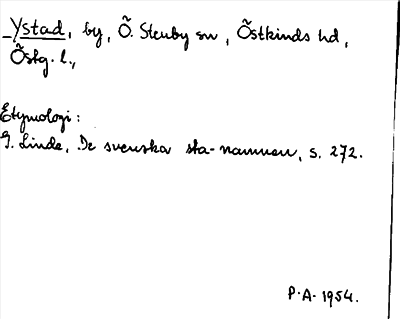 Ystad, by, Õ. Stenby sn, Õstkinds hd,
Õstg. l.,
Etymologi:
G. Linde, De svenska sta-namnen, s. 272.
P.A. 1954.